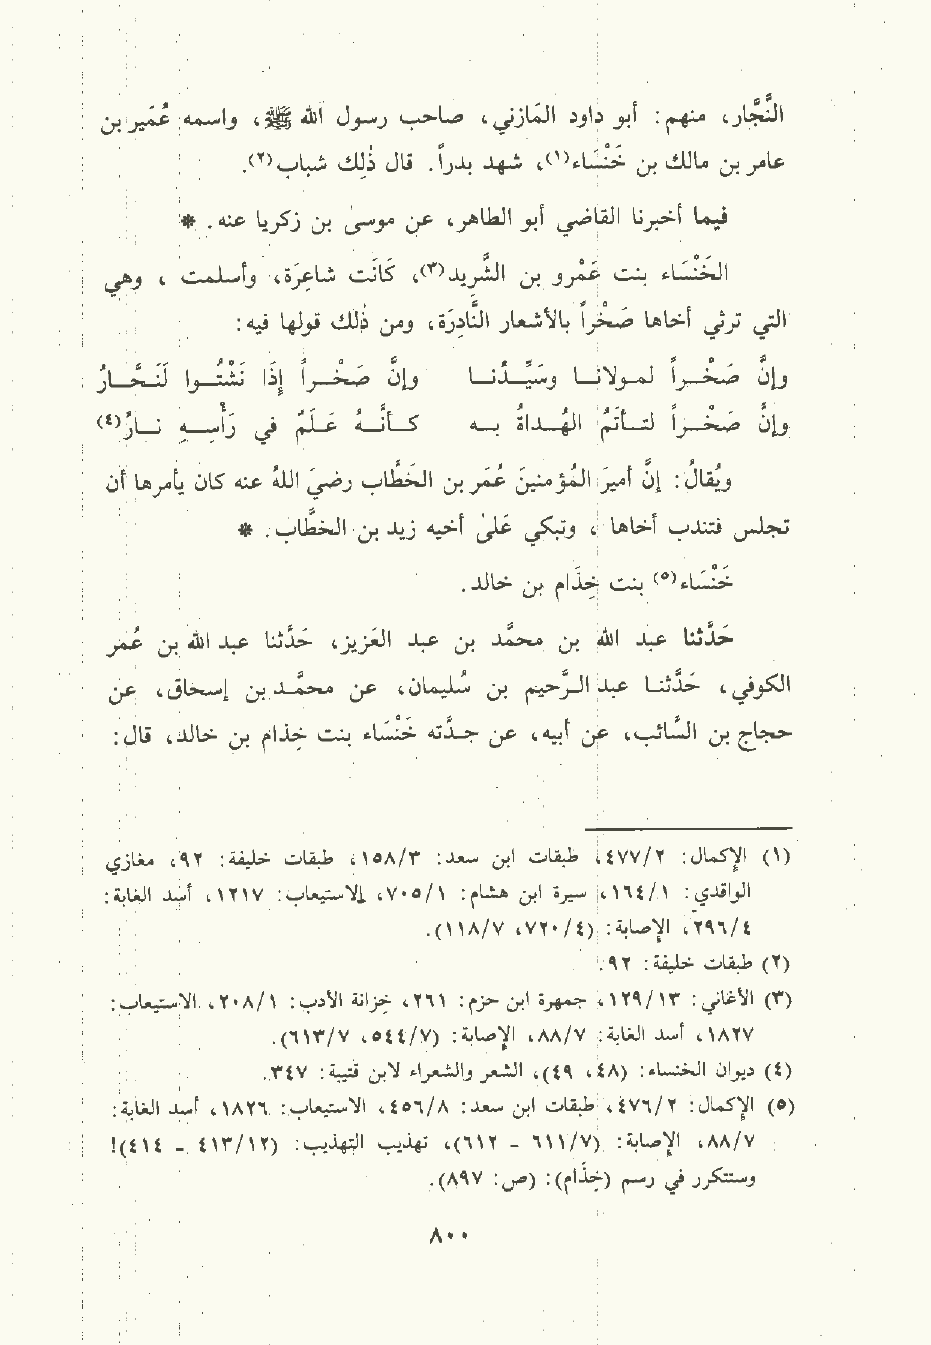 النَّجَّار، منهم: أبو داود المَازني، صاحب رسول الله ﷺ، واسمه عُمَير بن
عامر بن مالك بن خَنْسَاء(١)، شهد بدراً. قال ذَلِك شباب(٢).
فيما أخبرنا القاضي أبو الطاهر، عن موسىٰ بن زكريا عنه. *
الخَنْسَاء بنت عَمْرو بن الشَّرِيد(٣)، كَانَت شاعِرَة، وأسلمت، وهي
التي ترثي أخاها صَخْراً بالأشعار النَّادِرَة، ومن ذلك قولها فيه:
وإنَّ صَخْـراً لمـولانـا وسَيِّـدُنـا وإنَّ صَخْـراً إذَا نَشْتُـوا لَنَحَّـارُ
وإنَّ صَخْـراً لتـأتَمُّ الهُـداةُ بـه كـأنَّـهُ عَلَـمٌ في رَأْسِـهِ نـارُ(٤)
ويُقالُ: إنَّ أميرَ المُؤمنينَ عُمَر بن الخَطَّاب رضيَ اللهُ عنه كان يأمرها أن
تجلس فتندب أخاها، وتبكي عَلىٰ أخيه زيد بن الخطَّاب. *
خَنْسَاء(٥) بنت خِذَام بن خالد.
حَدَّثنا عبد الله بن محمَّد بن عبد العَزيز، حَدَّثنا عبد الله بن عُمَر
الكوفي، حَدَّثنا عبد الرَّحيم بن سُليمان، عن محمَّد بن إسحاق، عن
حجاج بن السَّائب، عن أبيه، عن جدَّته خَنْسَاء بنت خِذام بن خالد، قال:
(١) الإكمال: ٤٧٧/٢، طبقات ابن سعد: ١٥٨/٣، طبقات خليفة: ٩٢، مغازي
الواقدي: ١٦٤/١، سيرة ابن هشام: ٧٠٥/١، الاستيعاب: ١٢١٧، أسد الغابة:
٢٩٦/٤، الإصابة: (٧٢٠/٤، ١١٨/٧).
(٢) طبقات خليفة: ٩٢.
(٣) الأغاني: ١٢٩/١٣، جمهرة ابن حزم: ٢٦١، خِزانة الأدب: ٢٠٨/١، الاستيعاب:
١٨٢٧، أسد الغابة: ٨٨/٧، الإصابة: (٥٤٤/٧، ٦١٣/٧).
(٤) ديوان الخنساء: (٤٨، ٤٩)، الشعر والشعراء لابن قتيبة: ٣٤٧.
(٥) الإكمال: ٤٧٦/٢، طبقات ابن سعد: ٤٥٦/٨، الاستيعاب: ١٨٢٦، أسد الغابة:
٨٨/٧، الإصابة: (٦١١/٧ - ٦١٢)، تهذيب التهذيب: (٤١٣/١٢ - ٤١٤)!
وستتكرر في رسم (خِذَام): (ص: ٨٩٧).
٨٠٠